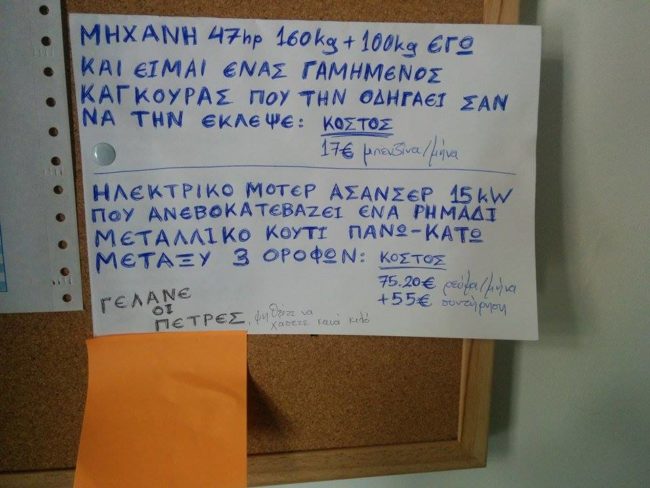 ΜΗΧΑΝΗ 47hp 160kg + 100kg ΕΓΩ
ΚΑΙ ΕΙΜΑΙ ΕΝΑΣ ΓΑΜΗΜΕΝΟΣ
ΚΑΓΚΟΥΡΑΣ ΠΟΥ ΤΗΝ ΟΔΗΓΑΕΙ ΣΑΝ
ΝΑ ΤΗΝ ΕΚΛΕΨΕ: ΚΟΣΤΟΣ
17€ μπενζίνα/μήνα
ΗΛΕΚΤΡΙΚΟ ΜΟΤΕΡ ΑΣΑΝΣΕΡ 15kW
ΠΟΥ ΑΝΕΒΟΚΑΤΕΒΑΖΕΙ ΕΝΑ ΡΗΜΑΔΙ
ΜΕΤΑΛΛΙΚΟ ΚΟΥΤΙ ΠΑΝΩ-ΚΑΤΩ
ΜΕΤΑΞΥ 3 ΟΡΟΦΩΝ: ΚΟΣΤΟΣ
75.20€ ρεύμα/μήνα
+55€ συντήρηση
ΓΕΛΑΝΕ
ΟΙ
ΠΕΤΡΕΣ, ψηθείτε να
χάσετε κανά κιλό